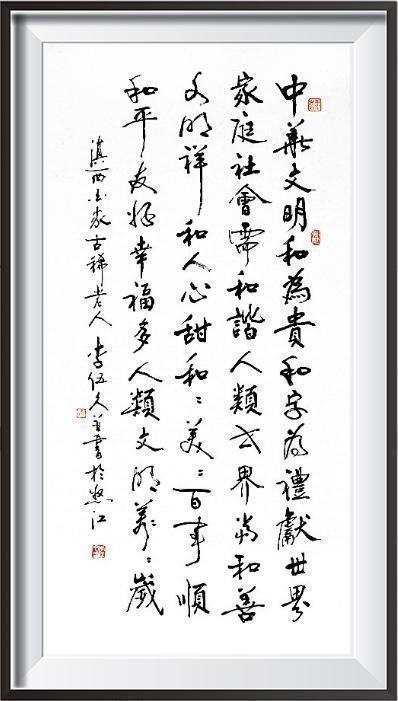 中華文明和為貴和字為禮獻世界
家庭社會需和諧人類世界尚和善
文明祥和人心甜和〻美〻百事順
和平友好幸福多人類文明萬〻歲
滇西古稀老人李伍久書於怒江